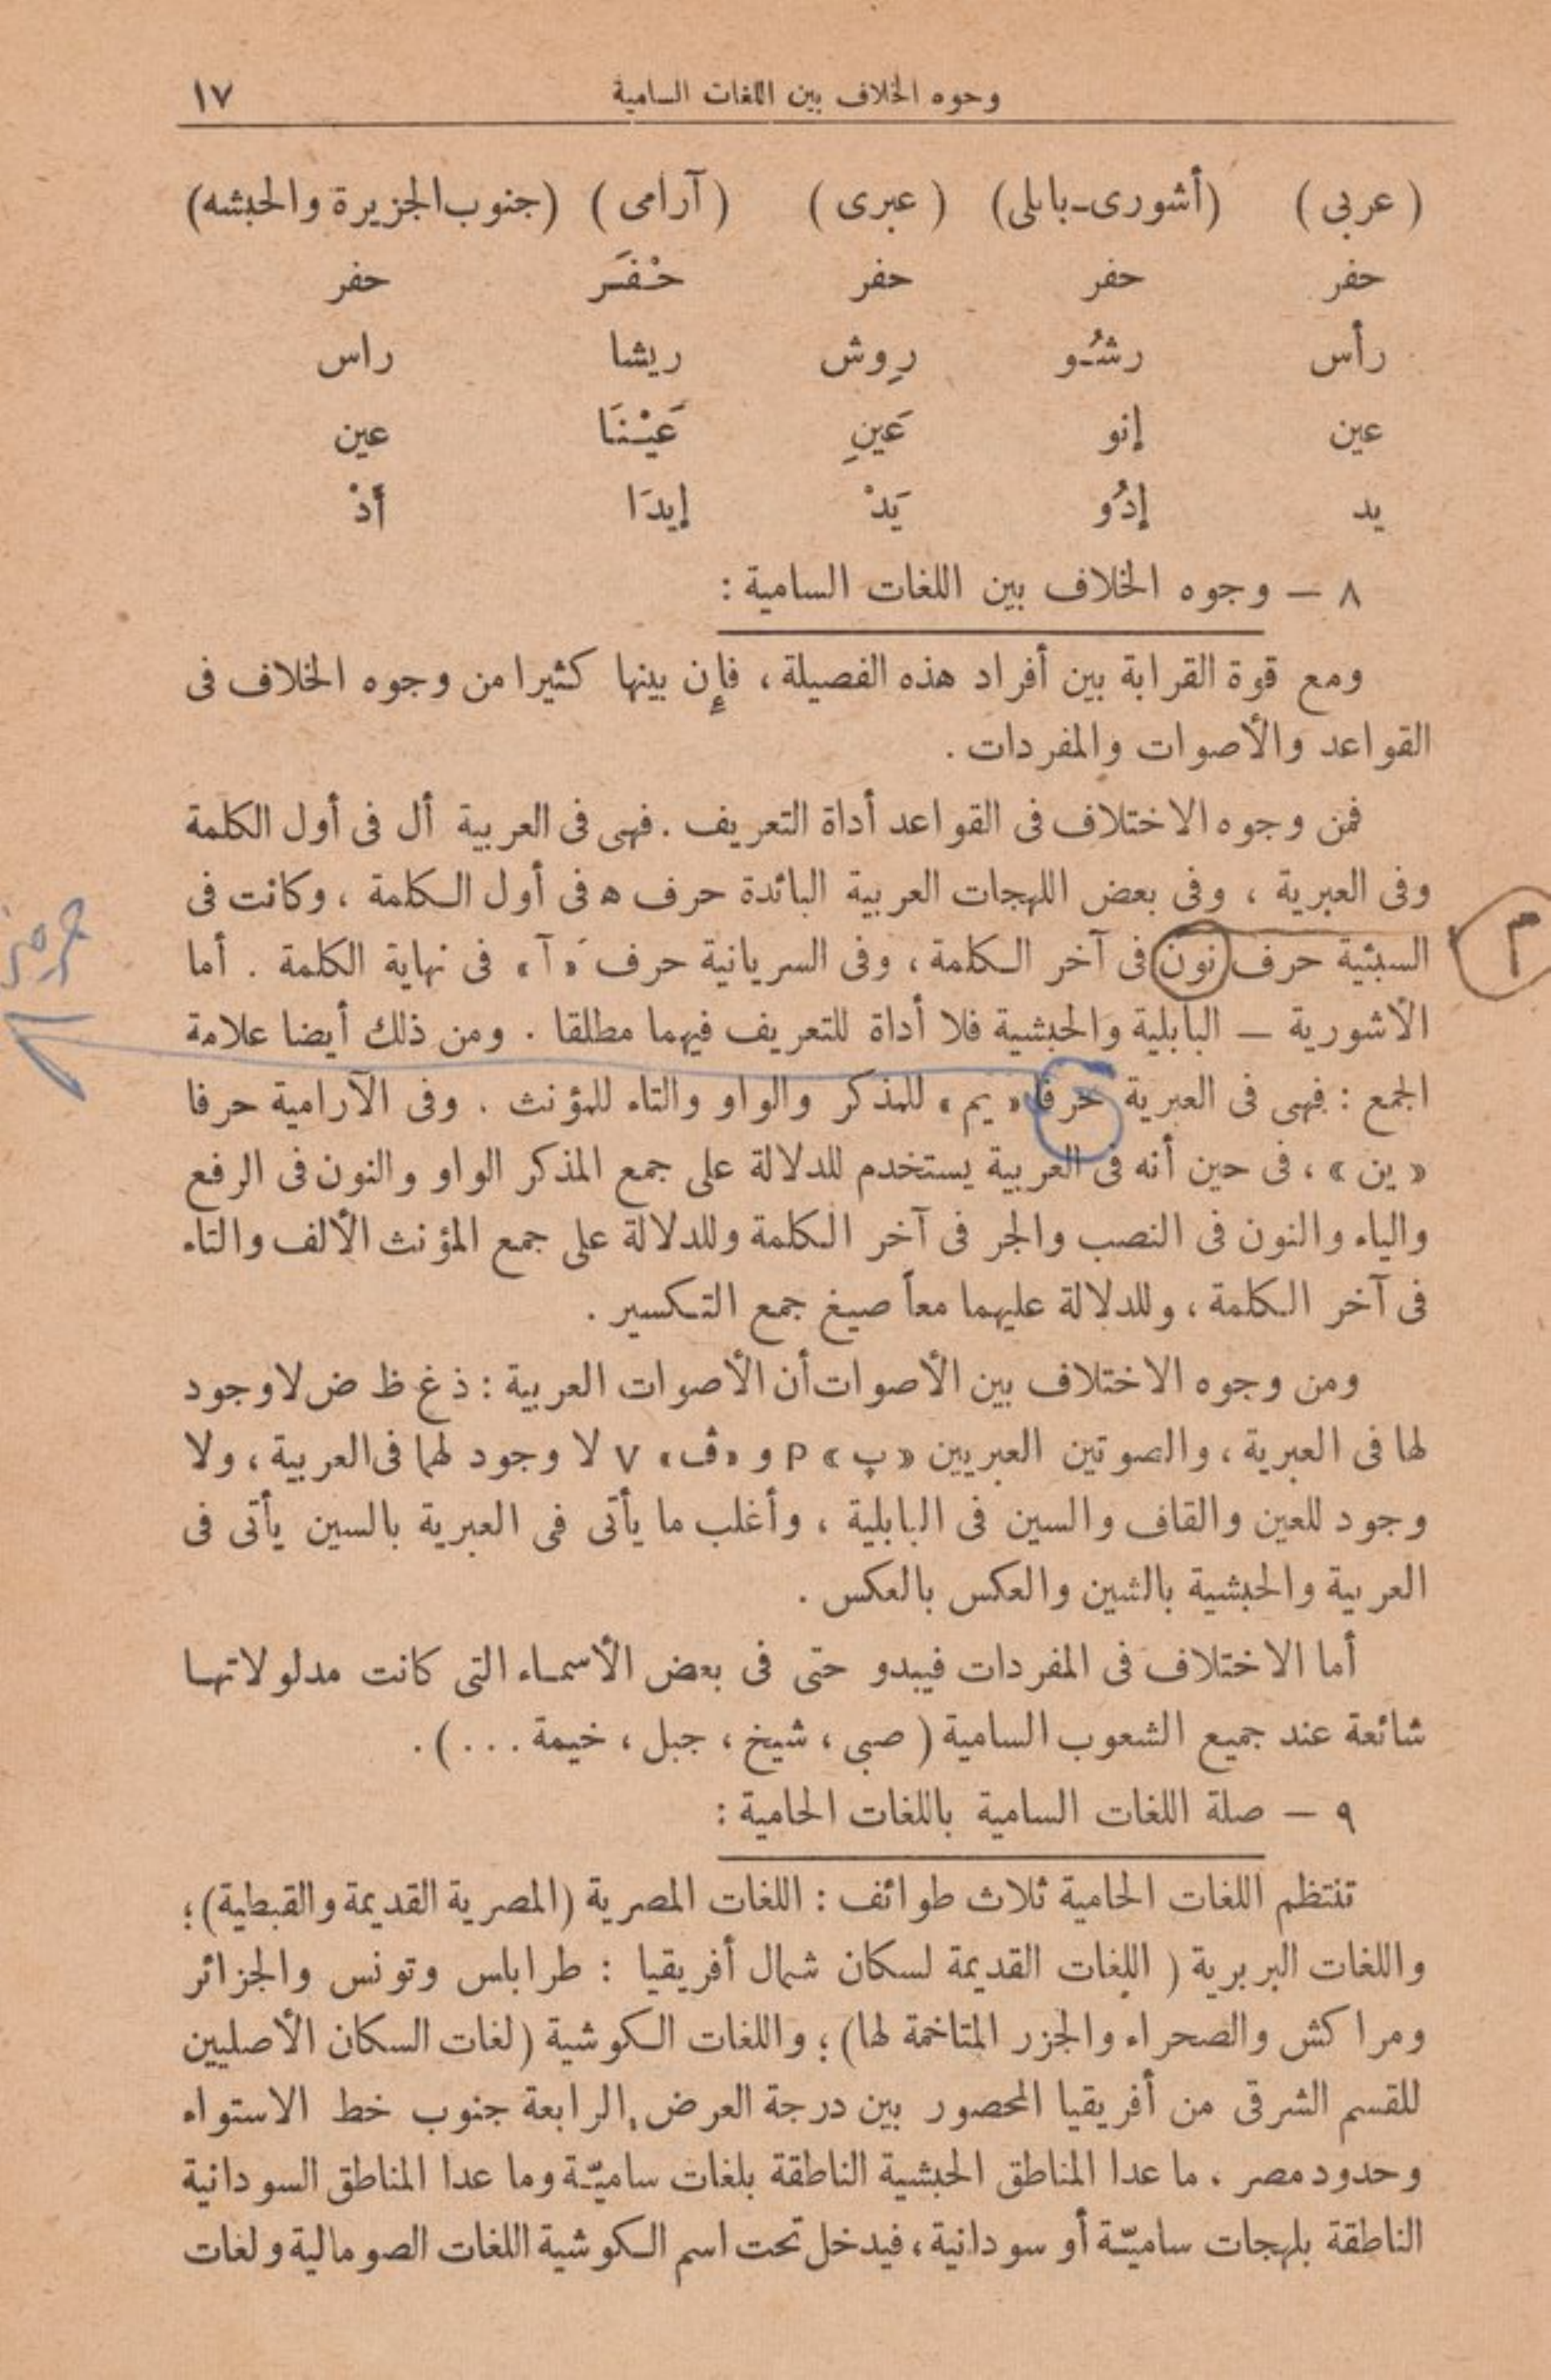 وجوه الخلاف بين اللغات السامية ١٧
( عربى ) (أشورى-بابلى) ( عبرى ) ( آرامى ) (جنوب الجزيرة والحبشه)
حفر حفر حفر حْفَر حفر
رأس رشُو رِوش ريشا راس
عين إنو عَينِ عَيْنَا عين
يد إدُو يَدْ إيدَا أَدْ
٨ — وجوه الخلاف بين اللغات السامية :
ومع قوة القرابة بين أفراد هذه الفصيلة ، فإن بينها كثيرا من وجوه الخلاف فى
القواعد والأصوات والمفردات .
فمن وجوه الاختلاف فى القواعد أداة التعريف . فهى فى العربية أل فى أول الكلمة
وفى العبرية ، وفى بعض اللهجات العربية البائدة حرف ه فى أول الكلمة ، وكانت فى
السبئية حرف نون فى آخر الكلمة ، وفى السريانية حرف « آ » فى نهاية الكلمة . أما
م
الأشورية — البابلية والحبشية فلا أداة للتعريف فيهما مطلقا . ومن ذلك أيضا علامة
الجمع : فهى فى العبرية حرفا « يم » للمذكر والواو والتاء للمؤنث . وفى الآرامية حرفا
« ين » ، فى حين أنه فى العربية يستخدم للدلالة على جمع المذكر الواو والنون فى الرفع
والياء والنون فى النصب والجر فى آخر الكلمة وللدلالة على جمع المؤنث الألف والتاء
فى آخر الكلمة ، وللدلالة عليهما معاً صيغ جمع التكسير .
ومن وجوه الاختلاف بين الأصوات أن الأصوات العربية : ذ غ ظ ض لا وجود
لها فى العبرية ، والصوتين العبريين « پ » P و « ڤ » V لا وجود لهما فى العربية ، ولا
وجود للعين والقاف والسين فى البابلية ، وأغلب ما يأتى فى العبرية بالسين يأتى فى
العربية والحبشية بالشين والعكس بالعكس .
أما الاختلاف فى المفردات فيبدو حتى فى بعض الأسماء التى كانت مدلولاتها
شائعة عند جميع الشعوب السامية ( صبى ، شيخ ، جبل ، خيمة ... ) .
٩ — صلة اللغات السامية باللغات الحامية :
تنتظم اللغات الحامية ثلاث طوائف : اللغات المصرية (المصرية القديمة والقبطية)؛
واللغات البربرية ( اللغات القديمة لسكان شمال أفريقيا : طرابلس وتونس والجزائر
ومراكش والصحراء والجزر المتاخمة لها) ؛ واللغات الكوشية (لغات السكان الأصليين
للقسم الشرقى من أفريقيا المحصور بين درجة العرض الرابعة جنوب خط الاستواء
وحدود مصر ، ما عدا المناطق الحبشية الناطقة بلغات ساميّة وما عدا المناطق السودانية
الناطقة بلهجات ساميّة أو سودانية ، فيدخل تحت اسم الكوشية اللغات الصومالية ولغات